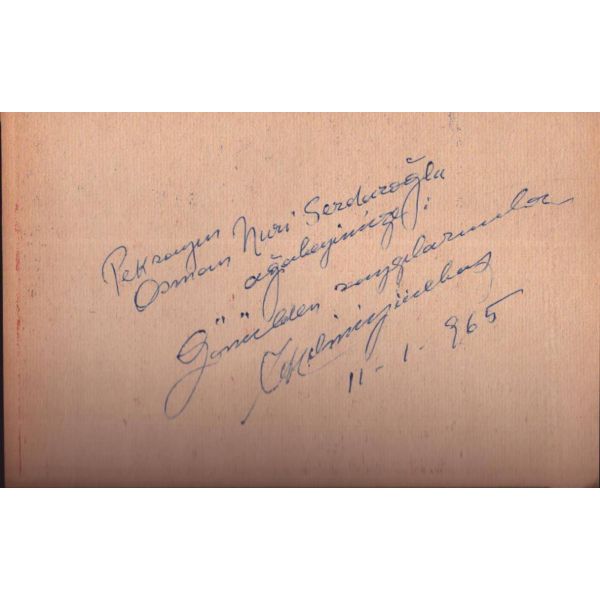 Peksayın
Osman Nuri Serdaroğlu
ağabeyimize;
Gönülden saygılarımla
11-1-965